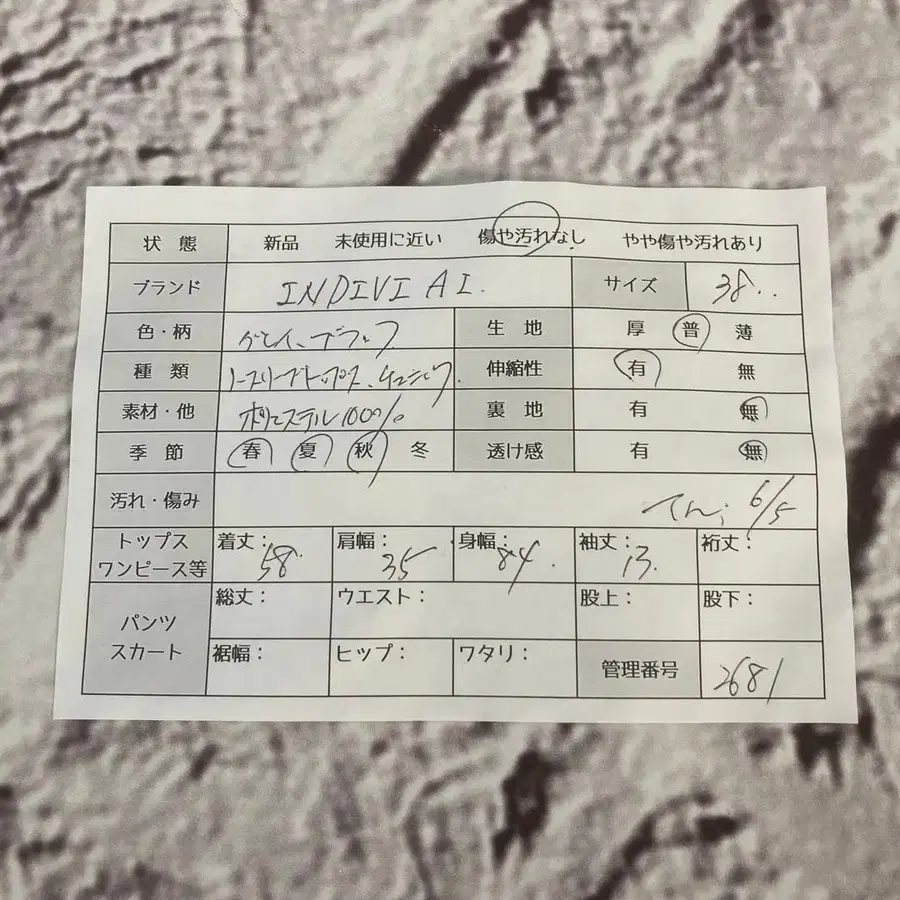 状態 新品 未使用に近い 傷や汚れなし やや傷や汚れあり
ブランド INDIVI A.I. サイズ 38
色・柄 グレイ、ブラック 生地 厚 普 薄
種類 ノースリーブトップス、チュニック 伸縮性 有 無
素材・他 ポリエステル100% 裏地 有 無
季節 春 夏 秋 冬 透け感 有 無
汚れ・傷み 6/5
トップス ワンピース等 着丈: 58 肩幅: 35 身幅: 84 袖丈: 13 裄丈:
パンツ スカート 総丈: ウエスト: 股上: 股下:
裾幅: ヒップ: ワタリ: 管理番号 2681